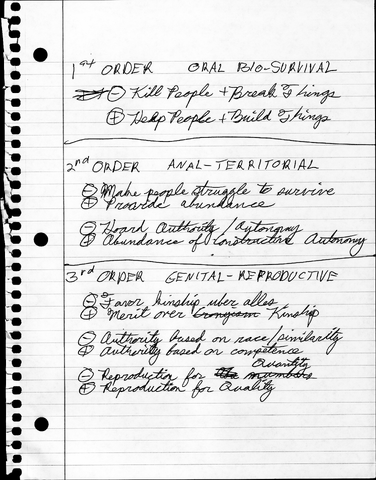 1st ORDER ORAL BIO-SURVIVAL
⊖ Kill People + Break Things
⊕ Help People + Build Things
2nd ORDER ANAL-TERRITORIAL
⊖ Make people struggle to survive
⊕ Provide abundance
⊖ Hoard Authority/Autonomy
⊕ Abundance of Constructive Autonomy
3rd ORDER GENITAL-REPRODUCTIVE
⊖ Favor kinship uber alles
⊕ Merit over Cronyism Kinship
⊖ Authority based on race/similarity
⊕ Authority based on competence
Quantity
⊖ Reproduction for the numbers
⊕ Reproduction for Quality